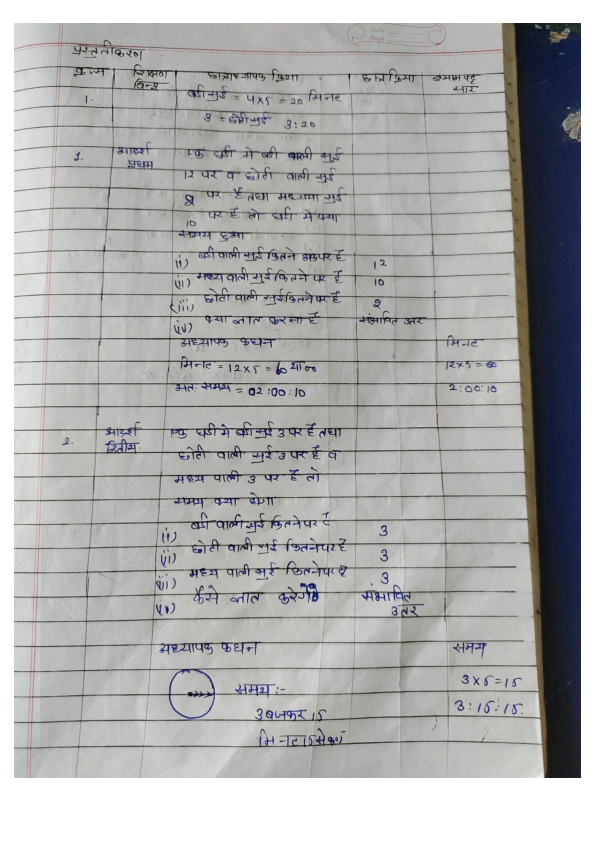 Date
Page
प्रस्तुतीकरण
क्र.सं शिक्षण बिन्दु छात्राध्यापक क्रिया छात्र क्रिया श्यामपट्ट सार
1. बडी सुई = 4x5 = 20 मिनट
3 = छोटी सुई 3:20
1. आदर्श प्रथम एक घडी मे बडी वाली सुई
12 पर व छोटी वाली सुई
2 पर है तथा मध्यमा सुई
10 पर है तो घडी मे क्या
समय हुआ
(i) बडी वाली सुई कितने अंक पर है 12
(ii) मध्य वाली सुई कितने पर है 10
(iii) छोटी वाली सुई कितने पर है 2
(iv) क्या ज्ञात करना है संभावित उत्तर
अध्यापक कथन मिनट
मिनट = 12x5 = 60 या 00 12x5 = 60
अतः समय = 02:00:10 2:00:10
2. आदर्श द्वितीय एक घडी मे बडी सुई 3 पर है तथा
छोटी वाली सुई 3 पर है व
मध्य वाली 3 पर है तो
समय क्या होगा
(i) बडी वाली सुई कितने पर है 3
(ii) छोटी वाली सुई कितने पर है 3
(iii) मध्य वाली सुई कितने पर है 3
(iv) कैसे ज्ञात करेगे संभावित उत्तर
अध्यापक कथन समय
समय:- 3x5=15
3 बजकर 15 3:15:15.
मिनट 15 सेकण्ड